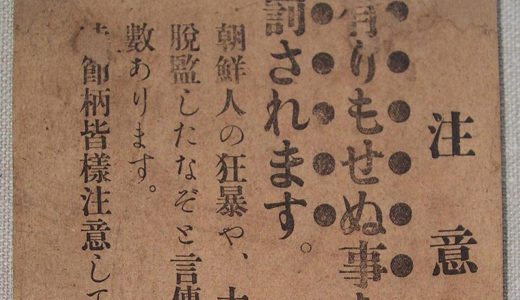 注意
有りもせぬ事
罰されます。
朝鮮人の狂暴や、
脱監したなぞと言傳
數あります。
節柄皆樣注意して